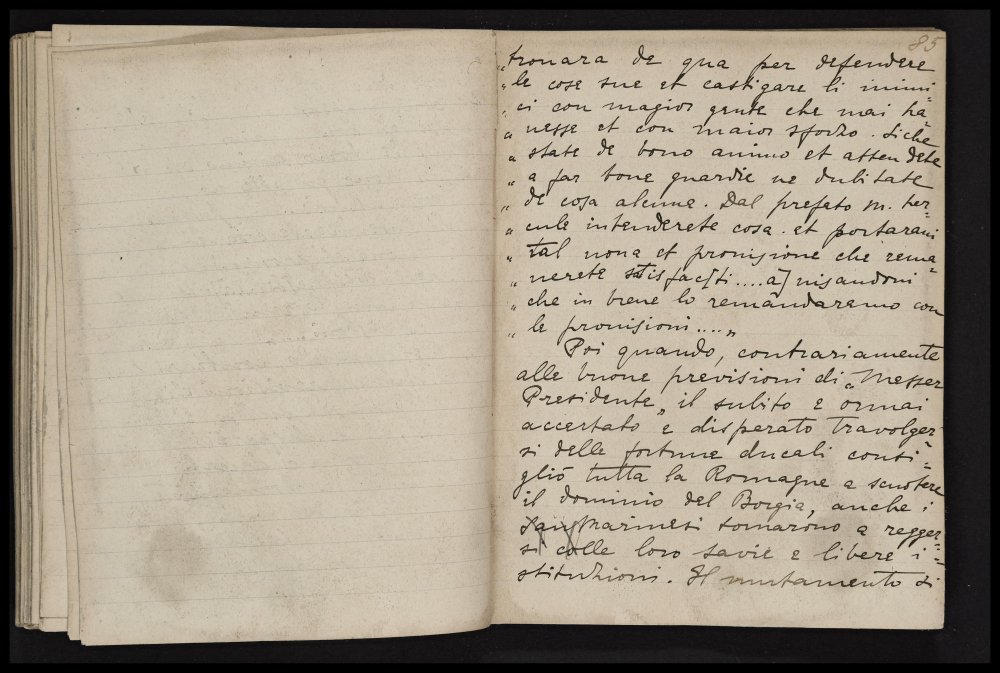 85
„tronara de qua per defendere
„le cose sue et castigare li inimi=
„ci con magior gente che mai ha=
„nesse et con maior sforzo. Siche
„state de bono animo et attendete
„a far bone guardie ne dubitate
„de cosa alcuna. Dal prefato m. her=
„cule intenderete cosa. et portarani
„tal nona et pronisione che rema=
„nerete satisfac[ti .... a] nisandoni
„che in breue lo remandaremo con
„le pronisioni .... „
Poi quando, contrariamente
alle buone previsioni di „Messer
Presidente„ il subito e ormai
accertato e disperato travolger=
si delle fortune ducali consi=
gliò tutta la Romagna a scuotere
il dominio del Borgia, anche i
Sanmarinesi tornarono a regger=
si colle loro savie e libere i=
stituzioni. Il mutamento di